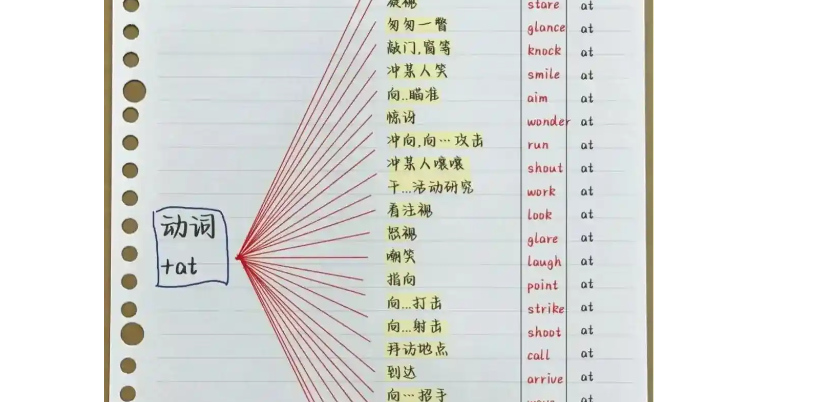 凝视 stare at
匆匆一瞥 glance at
敲门,窗等 knock at
冲某人笑 smile at
向..瞄准 aim at
惊讶 wonder at
冲向,向…攻击 run at
冲某人嚷嚷 shout at
干...活动研究 work at
看注视 look at
动词
怒视 glare at
+at
嘲笑 laugh at
指向 point at
向...打击 strike at
向...射击 shoot at
拜访地点 call at
到达 arrive at
向…招手 wave at